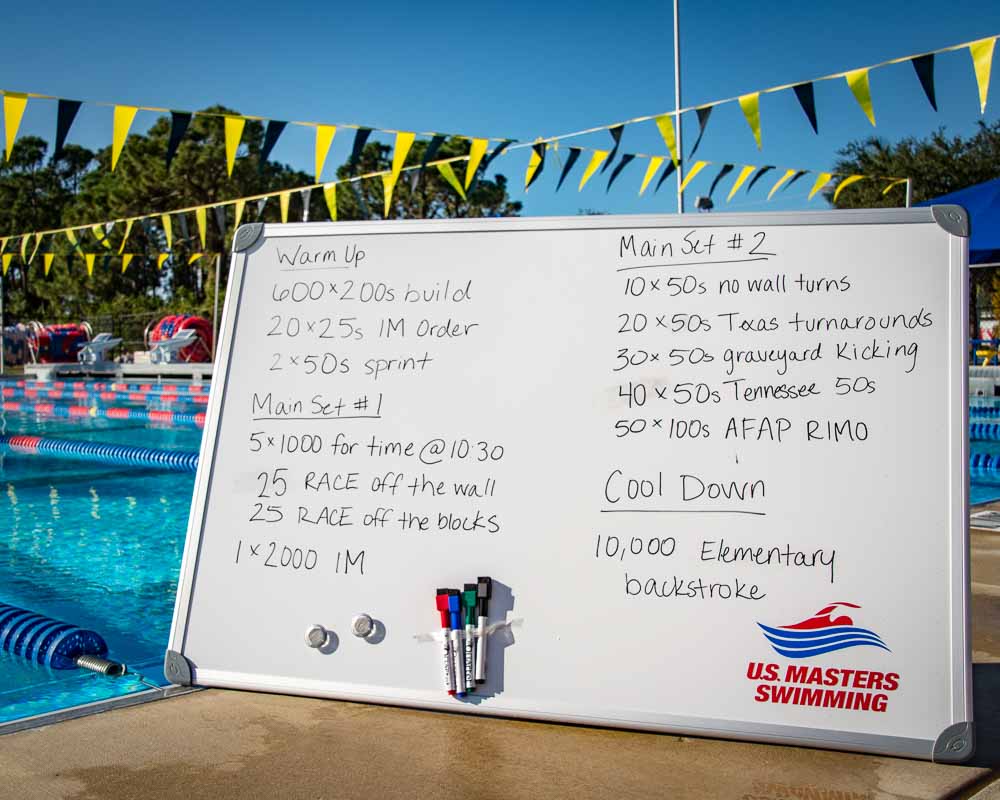 Warm Up
600 x 200s build
20 x 25s IM Order
2 x 50s sprint
Main Set #1
5 x 1000 for time @ 10:30
25 RACE off the wall
25 RACE off the blocks
1 x 2000 IM
Main Set #2
10 x 50s no wall turns
20 x 50s Texas turnarounds
30 x 50s graveyard kicking
40 x 50s Tennessee 50s
50 x 100s AFAP RIMO
Cool Down
10,000 Elementary
backstroke
U.S. MASTERS
SWIMMING